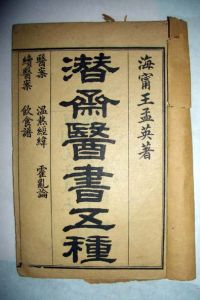 海甯王孟英著
潛齋醫書五種
醫案 溫熱經緯 霍亂論
續醫案 飲食譜